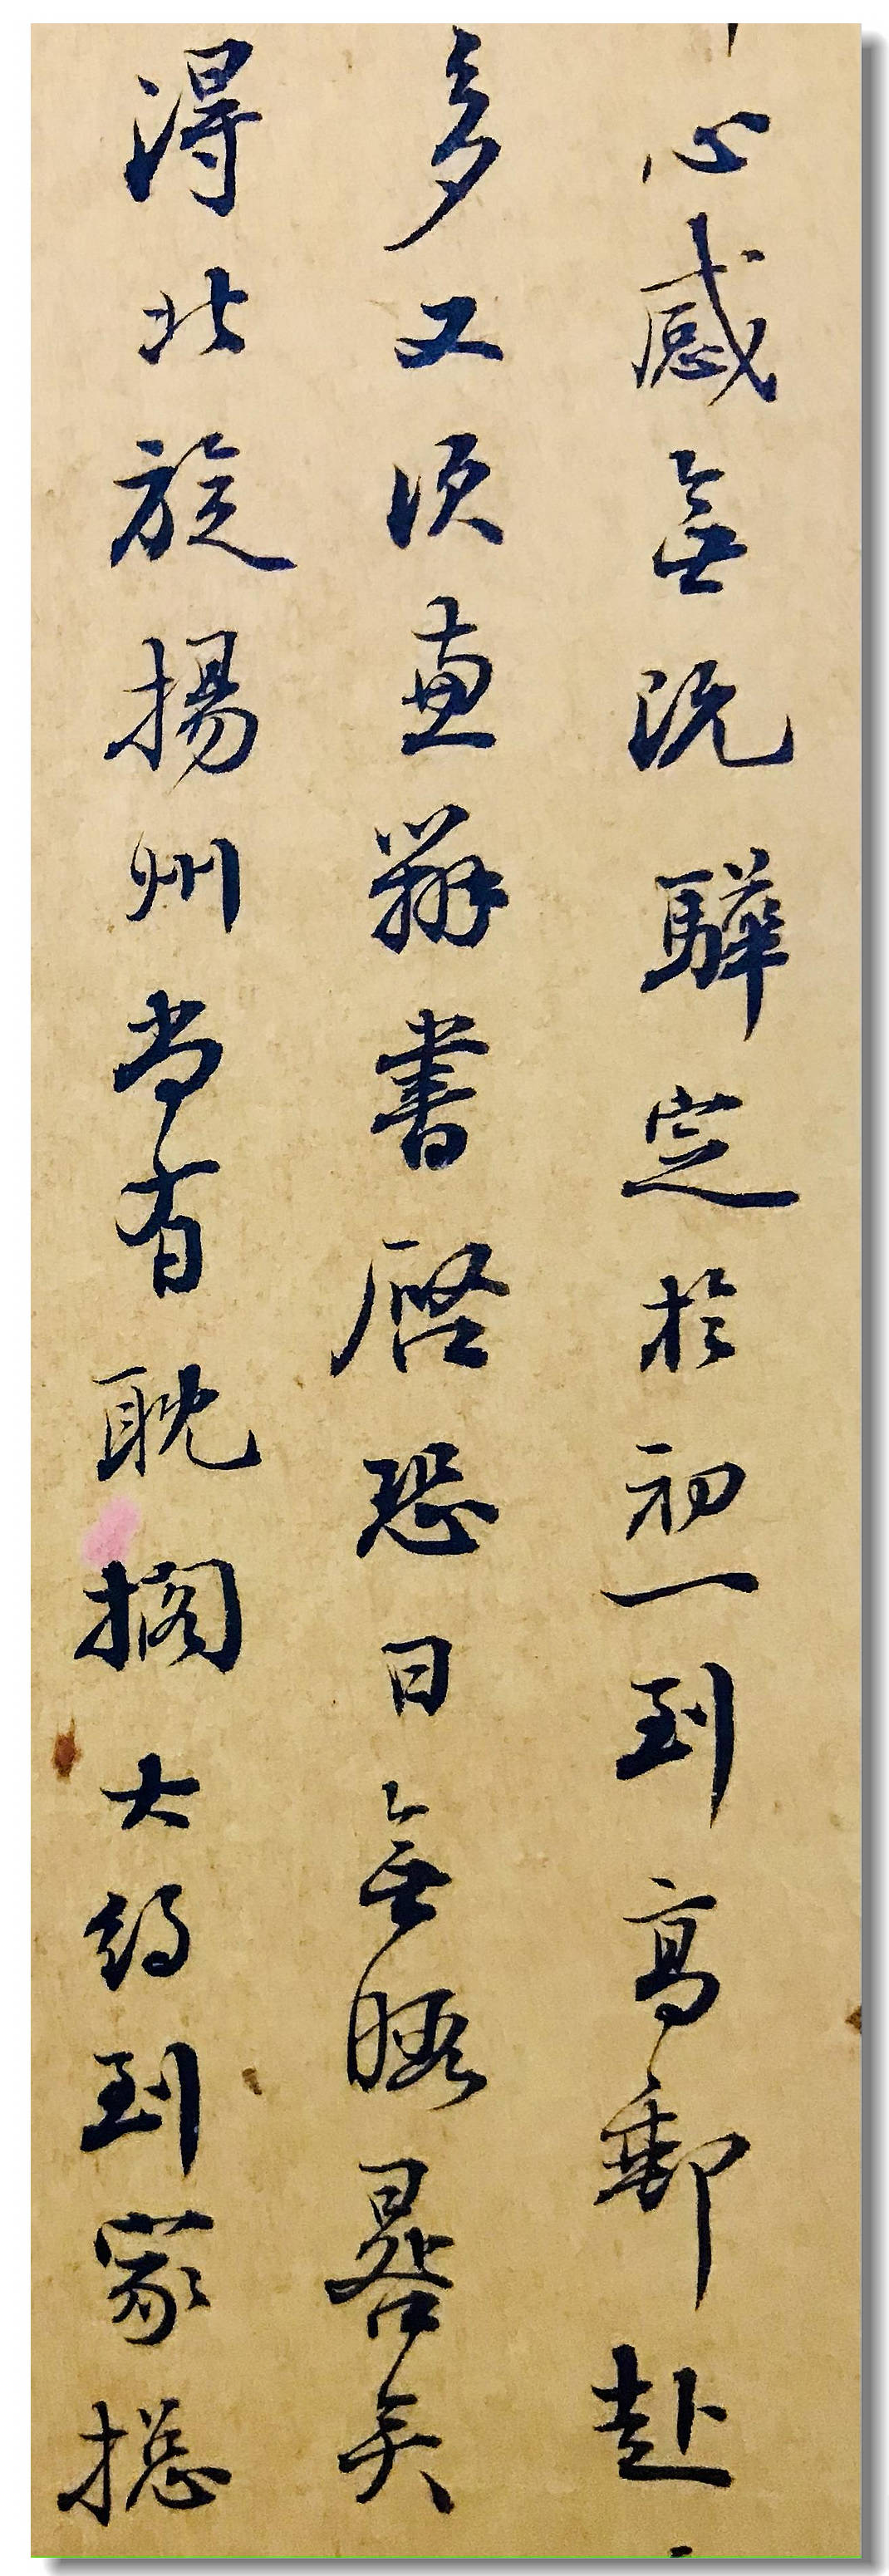 心感無既驊定於初一到高郵赴
多又須兼辦書啓恐日無暇晷矣
得北旋揚州尚有耽擱大約到家總